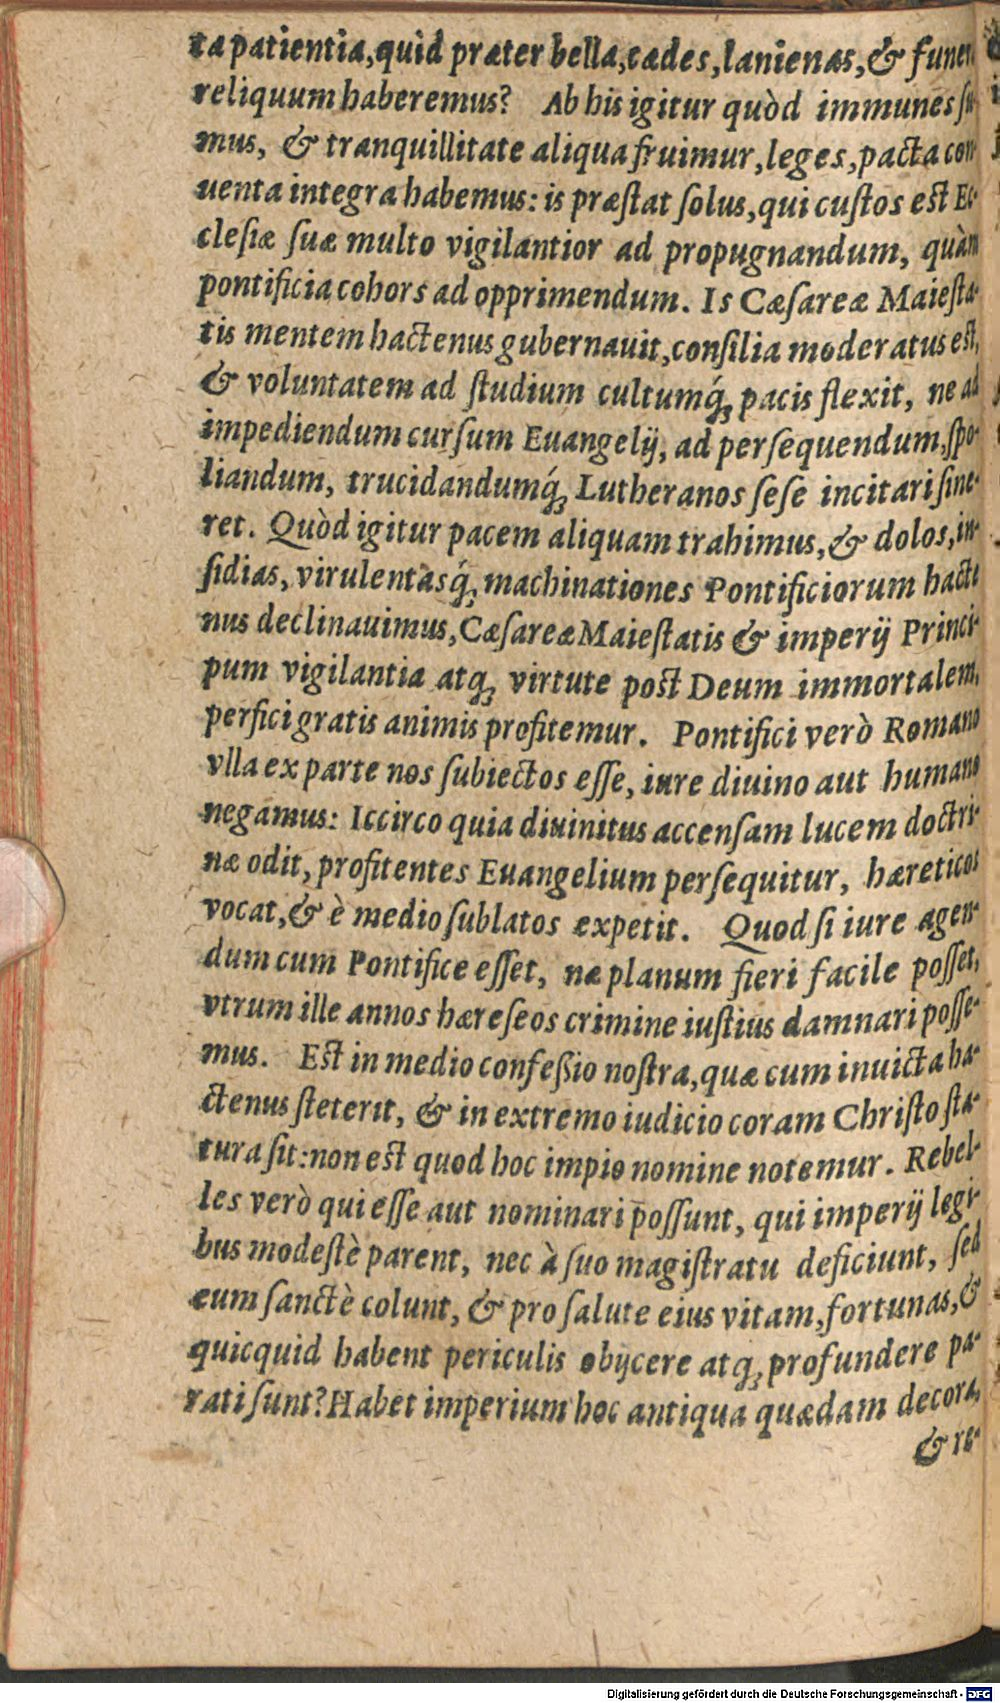 ta patientia, quid præter bella, cædes, laniena​s, & funer
reliquum haberemus? Ab his igitur quòd immunes ſu-
mus, & tranquillitate aliqua fruimur, leges, pacta con
uenta integra habemus: is præſtat ſolus, qui cuſtos est Ec-
cleſiæ ſuæ multo vigilantior ad propugnandum, quàm
pontificia cohors ad opprimendum. Is Cæſareæ Maieſta-
tis mentem hactenus gubernauit, conſilia moderatus est,
& voluntatem ad ſtudium cultumq́ꝫ pacis flexit, ne ad
impediendum curſum Euangelij, ad perſequendum, ſpo-
liandum, trucidandumq́ꝫ Lutheranos ſeſe incitari ſine-
ret. Quòd igitur pacem aliquam trahimus, & dolos, in-
ſidias, virulentasq́ꝫ machinationes Pontificiorum hacte
nus declinauimus, Cæſareæ Maieſtatis & imperij Princi-
pum vigilantia atqꝫ virtute post Deum immortalem,
perfici gratis animis profitemur. Pontifici verò Romano
vlla ex parte nos ſubiectos eſſe, iure diuino aut humano
negamus: Iccirco quia diuinitus accenſam lucem doctri-
næ odit, profitentes Euangelium perſequitur, hæreticos
vocat, & è medio ſublatos expetit. Quod ſi iure agen-
dum cum Pontifice eſſet, næ planum fieri facile poſſet,
vtrum ille an nos hæreſeos crimine iuſtius damnari poſſe-
mus. Est in medio confeßio noſtra, quæ cum inuicta ha-
ctenus ſteterit, & in extremo iudicio coram Chriſto ſta-
tura ſit: non est quod hoc impio nomine notemur. Rebel-
les verò qui eſſe aut nominari poſſunt, qui imperij legi-
bus modeſtè parent, nec à ſuo magiſtratu deficiunt, ſed
eum ſanctè colunt, & pro ſalute eius vitam, fortunas, &
quicquid habent periculis obijcere atqꝫ profundere pa-
rati ſunt? Habet imperium hoc antiqua quædam decora,
& re-
Digitalisierung gefördert durch die Deutsche Forschungsgemeinschaft - DFG